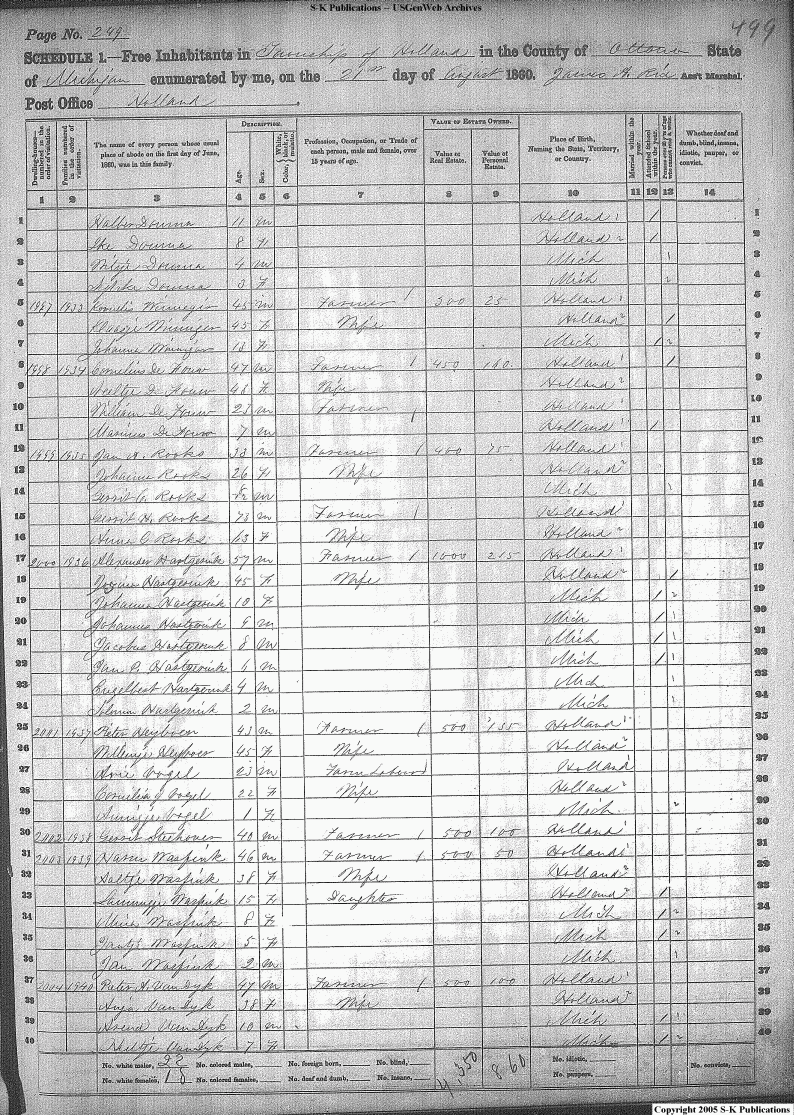 S-K Publications – USGenWeb Archives
499
Page No. 249
SCHEDULE 1.—Free Inhabitants in Township of Holland in the County of Ottowa State
of Michigan enumerated by me, on the 21st day of August 1860. James A. Ass't Marshal.
Post Office Holland
Dwelling-houses numbered in the order of visitation. Families numbered in the order of visitation. The name of every person whose usual place of abode on the first day of June, 1860, was in this family. DESCRIPTION. Age. Sex. Color, White, black, or mulatto. Profession, Occupation, or Trade of each person, male and female, over 15 years of age. VALUE OF ESTATE OWNED. Value of Real Estate. Value of Personal Estate. Place of Birth, Naming the State, Territory, or Country. Married within the year. Attended School within the year. Whether deaf and dumb, blind, insane, idiotic, pauper, or convict.
1 2 3 4 5 6 7 8 9 10 11 12 13 14
1 Douma 11 m Holland 1 / 1
2 Ike Douma 8 f Holland 2 / 2
3 Douma 4 m Mich 1 3
4 Douma 3 f Mich 2 4
5 1997 1933 Kornelis 45 m Farmer 1 300 25 Holland 1 5
6 45 f Wife Holland 2 / 6
7 Johanna 13 f Mich / 2 7
8 1998 1934 Cornelius De Houw 47 m Farmer 1 450 160 Holland 1 / 8
9 De Houw 46 f Wife Holland 2 9
10 William De Houw 23 m Farmer 1 Holland 1 10
11 Marinus De Houw 7 m Holland 1 / 11
12 1999 1935 Jan H. Rooks 33 m Farmer 1 400 75 Holland 1 12
13 Johanna Rooks 26 f Wife Holland 2 13
14 Gerrit Rooks m Mich 1 14
15 Gerrit H. Rooks 73 m Farmer 1 Holland 1 15
16 Anna C Rooks 63 f Wife Holland 2 16
17 2000 1936 Alexander Hartgerink 57 m Farmer 1 1000 215 Holland 1 17
18 Hartgerink 45 f Wife Holland 2 / 18
19 Johanna Hartgerink 10 f Mich / 2 19
20 Johannes Hartgerink 9 m Mich / 1 20
21 Jacobus Hartgerink 8 m Mich / 1 21
22 Jan P. Hartgerink 6 m Mich / 1 22
23 Engelbert Hartgerink 4 m Mich 1 23
24 Hartgerink 2 m Mich 1 24
25 2001 1937 Pieter Heyboer 43 m Farmer 1 500 135 Holland 1 25
26 Willemje Heyboer 45 f Wife Holland 2 26
27 Arie Vogel 23 m Farm Laborer Holland 27
28 Cornelia J Vogel 22 f Wife Holland 2 28
29 Vogel 1 f Mich 2 29
30 2002 1938 Gerrit 40 m Farmer 1 500 100 Holland 1 30
31 2003 1939 Harm Waspink 46 m Farmer 1 500 50 Holland 1 31
32 Aaltje Waspink 38 f Wife Holland 2 32
33 Waspink 15 f Daughter Holland 2 / 33
34 Waspink 8 f Mich / 2 34
35 Waspink 5 f Mich / 2 35
36 Jan Waspink 2 m Mich 1 36
37 2004 1940 Peter A. Van Dyk 47 m Farmer 1 500 100 Holland 1 37
38 Van Dyk 38 f Wife Holland 2 38
39 Arend Van Dyk 10 m Mich / 1 39
40 Van Dyk 7 f Mich / 2 40
No. white males, 22 No. colored males, No. foreign born, No. blind, 4,350 860 No. idiotic, No. convicts,
No. white females, 18 No. colored females, No. deaf and dumb, No. insane, No. paupers,
Copyright 2005 S-K Publications